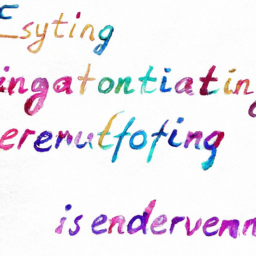 Esyting
ingatontiating
erenutfofing
isendervenn